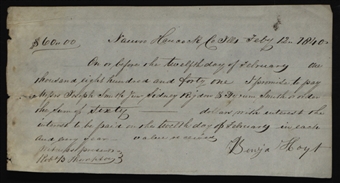 $60.00 Nauvoo Hancock Co Ills Feby 12th 1840.
On or before the twelfth day of February one
thousand eight hundred and forty one I promise to pay
Joseph Smith Jun Sidney Rigdon & Hyrum Smith or order
the sum of Sixty dollars with interest the
interest to be paid on the twelfth day of February in each
and every year value received
Benja Hoyt
Robt B Thompson